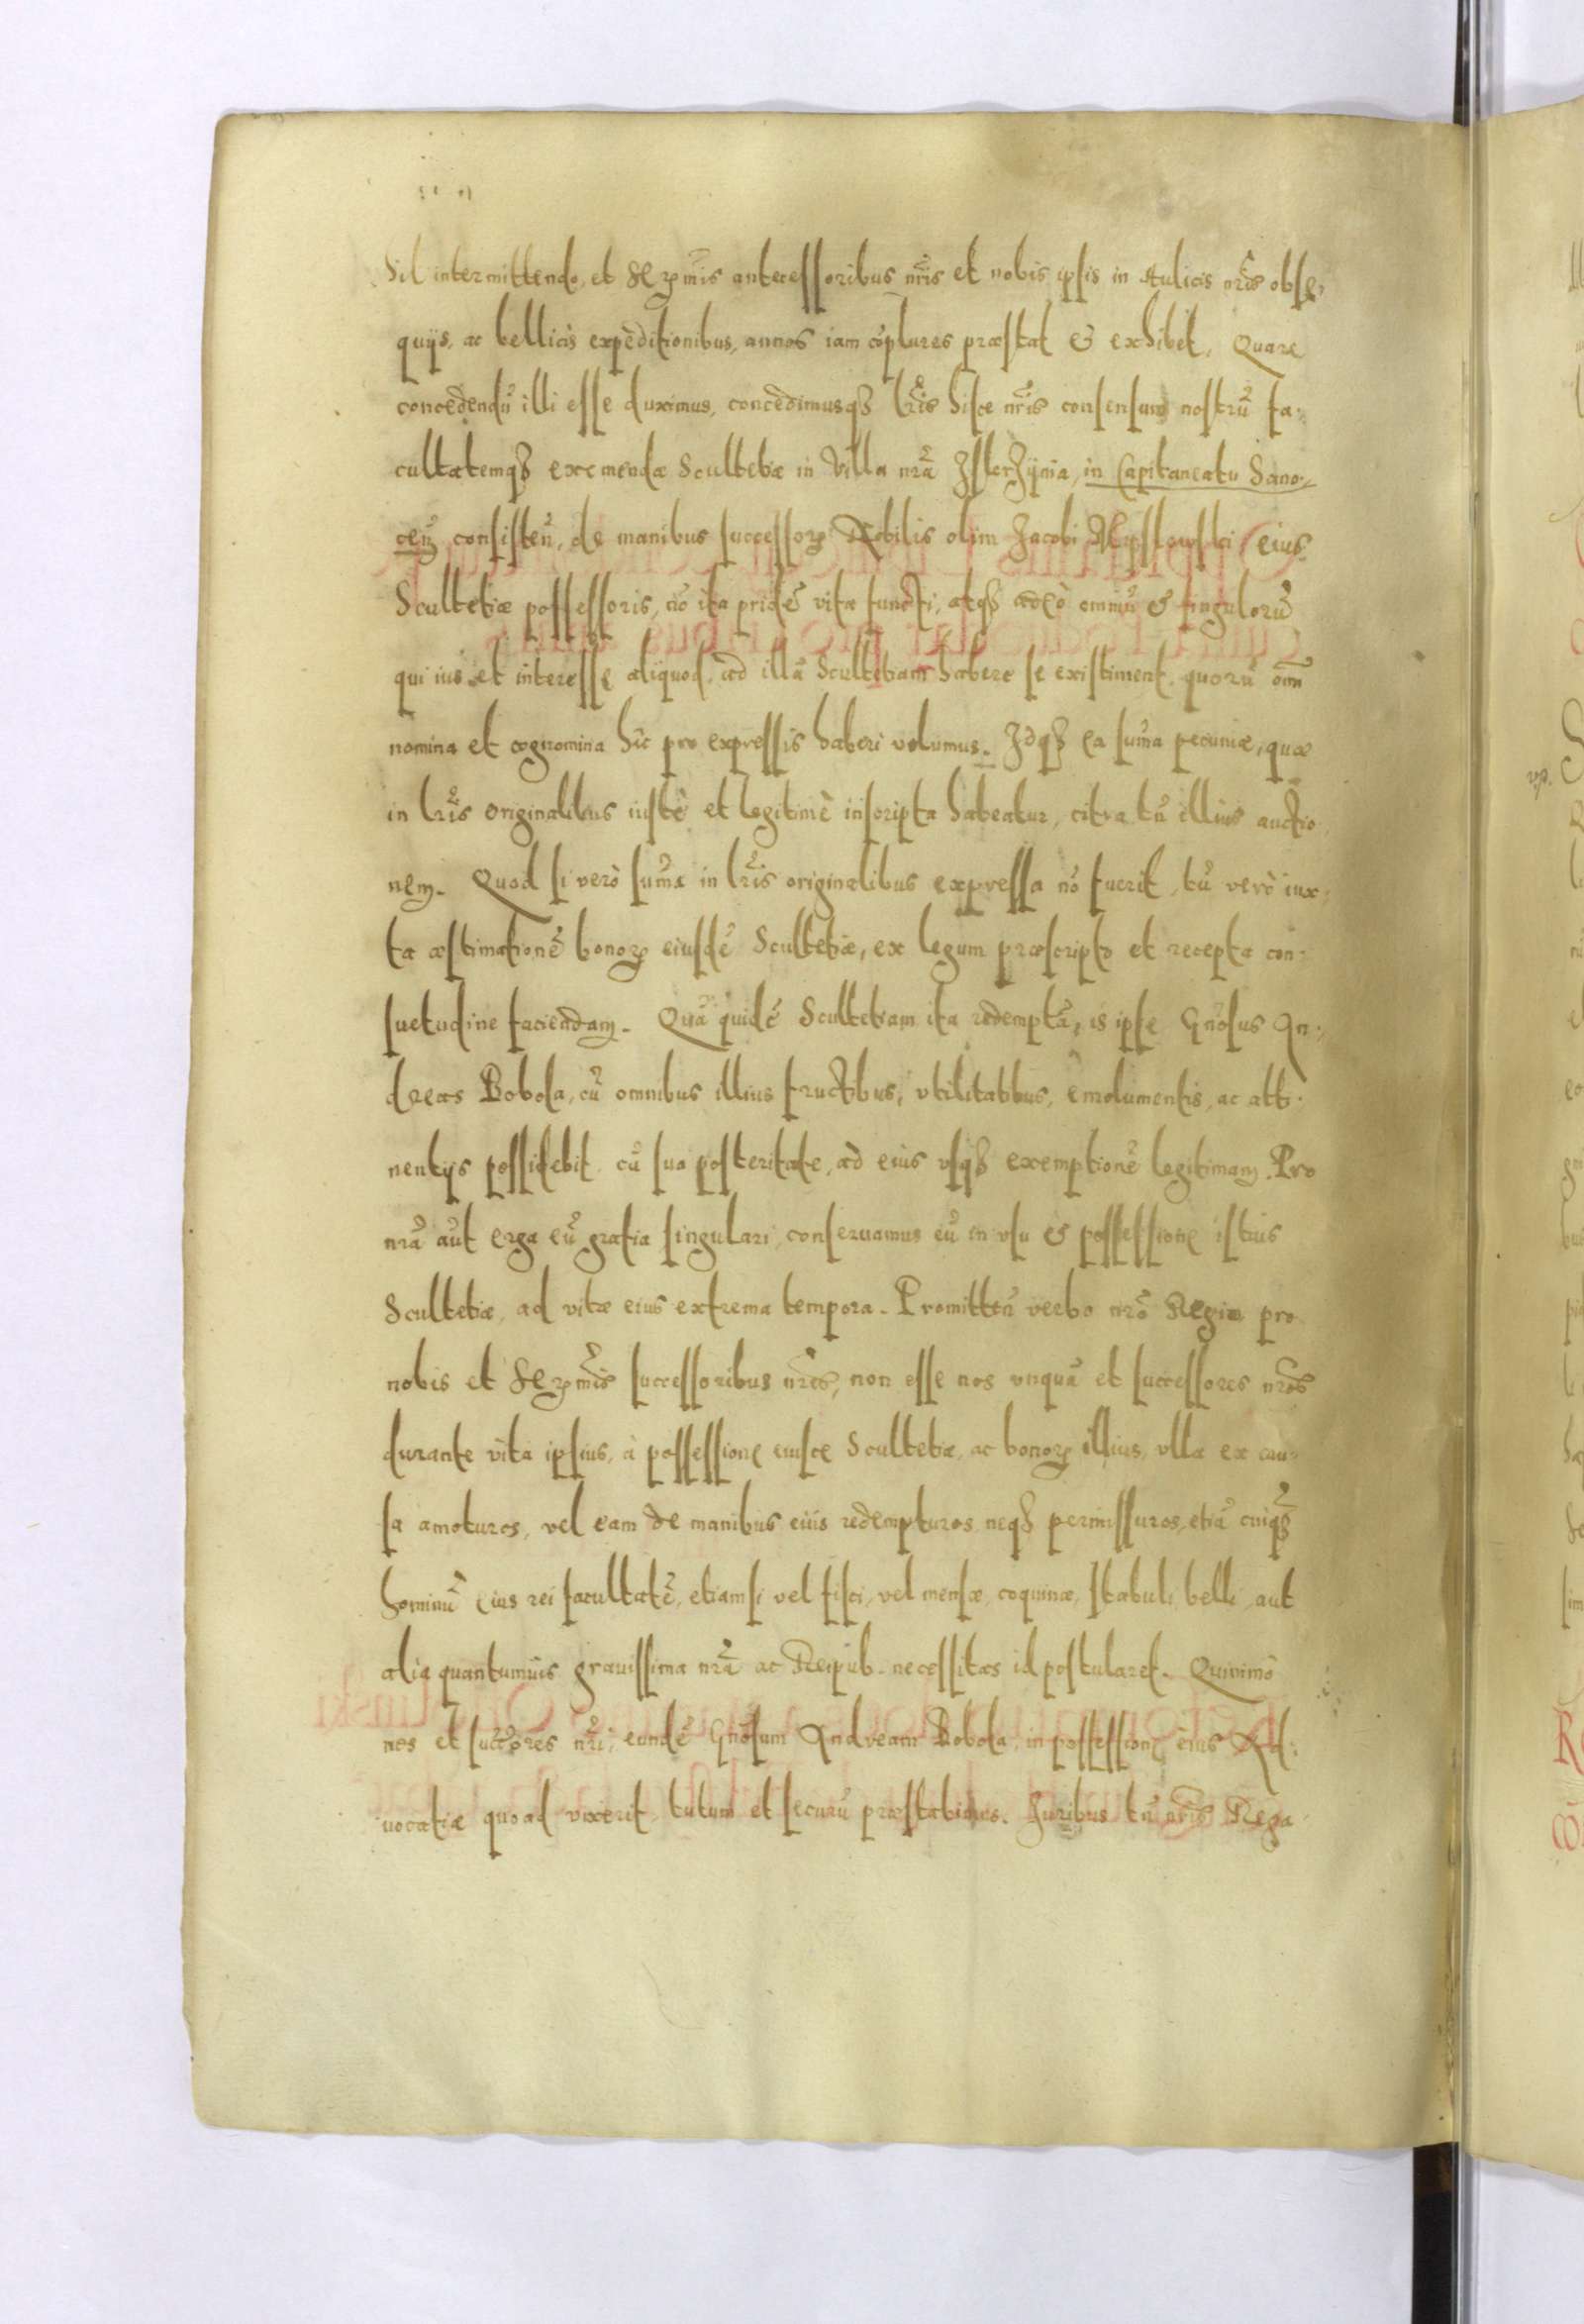 Sil intermittendo, et Serꝫmis antecessoribus nr̃is et nobis ipsis in Aulicis nr̃is obse,
quijs, ac bellicis expeditionibus, annos iam cõplures præstat & exhibet, Quare
concedendũ illi esse duximus, concedimusqꝫ lr̃is hisce nr̃is consensum nostrũ fa:
cultatemqꝫ exemendæ Scultetiæ in Villa nr̃a in Capitaneatu Sano:
ceñ consisteñ, de manibus successorꝝ Nobilis olim Jacobi eius
Scultetiæ possessoris, nõ ita pridẽ vitæ functi, atqꝫ adeò omniũ & singulorũ
qui ius et interesse aliquod, ad illã Scultetiam habere se existiment, quorũ om̃
nomina et cognomina hîc pro expressis haberi volumus. Idqꝫ ea sum̃a pecuniæ, quæ
in lr̃is originalibus iustè et legitimè inscripta habeatur, citra tñ illius auctio
nem. Quod si verò sum̃a in lr̃is originalibus expressa nõ fuerit, tũ verò iux:
ta æstimationẽ bonorꝝ eiusdẽ Scultetiæ, ex legum præscripto et recepta con:
suetudine faciendam. Quã quidẽ Scultetiam ita redemptã, is ipse Gñosus An:
dreas Bobola, cũ omnibus illius fructibus, vtilitatibus, emolumentis, ac atti:
nentijs possidebit cũ sua posteritate, ad eius vsqꝫ exemptionẽ legitimam. Pro
nr̃a aũt erga eũ gratia singulari, conseruamus eũ in vsu & possessione istius
Scultetiæ, ad vitæ eius extrema tempora. Promitteñ verbo nr̃o Regio pro
nobis et Serꝫmis successoribus nr̃is, non esse nos vnquã et successores nr̃os
durante vita ipsius, à possessione eiusce Scultetiæ, ac bonorꝝ illius, vlla ex cau:
sa amoturos, vel eam de manibus eius redempturos neqꝫ permissuros, etiã cuiqꝫ̃
hominũ eius rei facultatẽ, etiamsi vel fisci, vel mensæ, coquinæ, stabuli belli aut
alia quantumuis grauissima nr̃a ac Reipub. necessitas id postularet. Quinimò
nos et succ̃ores nr̃i, eundẽ Gñosum Andream Bobola, in possessione eius Ad:
uocatiæ quoad vixerit, tutum et securũ præstabimus. Juribus tñ nr̃is Rega